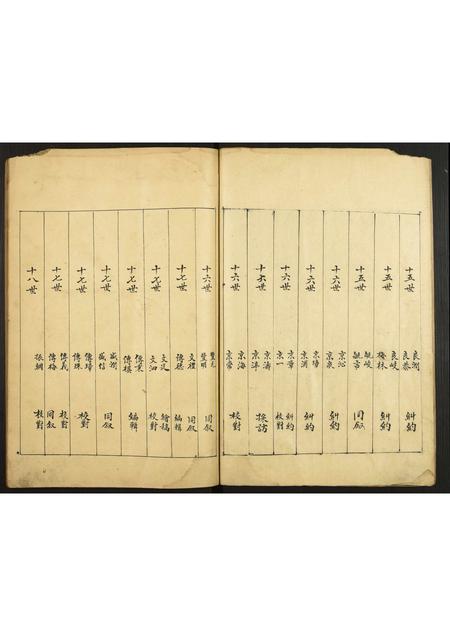 十五世 良淵 良恭 糾約
十五世 良岐 梅林 糾約
十五世 毓岐 毓吉 同叙
十六世 京沁 京泉 糾約
十六世 京璋 京渊 糾約
十六世 京華 京一 糾約 校對
十六世 京濤 京洋 採訪
十六世 京海 京常 校對
十六世 豐元 豐明 同叙
十七世 文禮 傳德 同叙 編輯
十七世 文廷 文泗 繪稿 校對
十七世 傳業 傳棋 編輯
十七世 盛潤 盛信 同叙
十七世 傳璋 傳珠 校對
十七世 傳義 傳梅 校對 同叙
十八世 振綱 校對